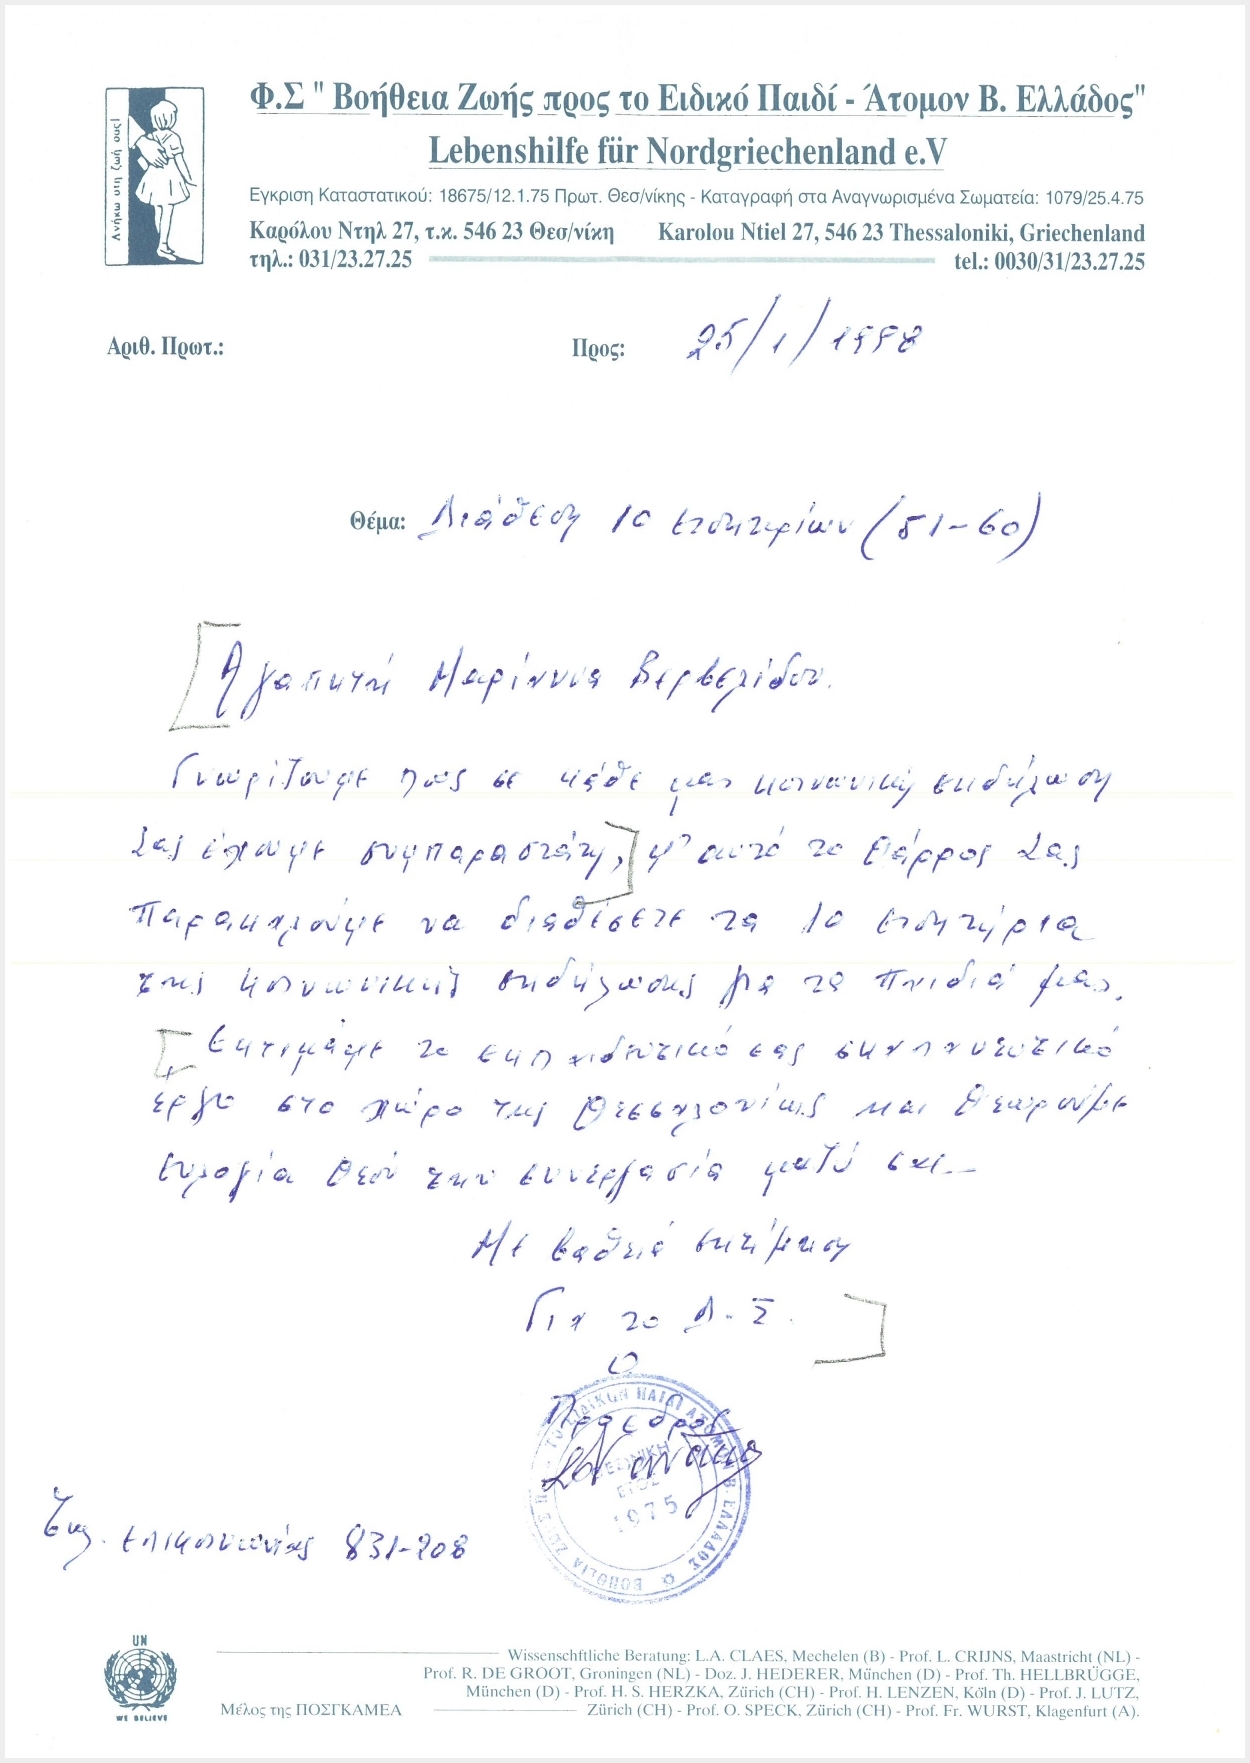 Φ.Σ " Βοήθεια Ζωής προς το Ειδικό Παιδί - Άτομον Β. Ελλάδος"
Lebenshilfe für Nordgriechenland e.V
Ανήκω στη ζωή σους!
Εγκριση Καταστατικού: 18675/12.1.75 Πρωτ. Θεσ/νίκης - Καταγραφή στα Αναγνωρισμένα Σωματεία: 1079/25.4.75
Καρόλου Ντηλ 27, τ.κ. 546 23 Θεσ/νίκη Karolou Ntiel 27, 546 23 Thessaloniki, Griechenland
τηλ.: 031/23.27.25 tel.: 0030/31/23.27.25
Αριθ. Πρωτ.: Προς: 25/1/1998
Θέμα: Διάθεση 10 εισητηρίων (51-60)
Αγαπητή Μαρίννια
Γνωρίζουμε πως σε κάθε μας κοινωνική εκδήλωση
Σας έχουμε συμπαραστάτη, μ' αυτό το θάρρος Σας
παρακαλούμε να διαθέσετε τα 10 εισητήρια
της κοινωνικής εκδήλωσης για τα παιδιά μας.
Εκτιμάμε το εκπαιδευτικό σας
έργο στο χώρο της Θεσσαλονίκης και θεωρούμε
ευλογία Θεού την συνεργασία μαζύ σας
Με βαθειά εκτίμηση
Για το Δ.Σ.
Ο
Πρόεδρος
1975
Τηλ. επικοινωνίας 831-208
UN
WE BELIEVE
Μέλος της ΠΟΣΓΚΑΜΕΑ
Wissenschftliche Beratung: L.A. CLAES, Mechelen (B) - Prof. L. CRIJNS, Maastricht (NL) -
Prof. R. DE GROOT, Groningen (NL) - Doz. J. HEDERER, München (D) - Prof. Th. HELLBRÜGGE,
München (D) - Prof. H. S. HERZKA, Zürich (CH) - Prof. H. LENZEN, Köln (D) - Prof. J. LUTZ,
Zürich (CH) - Prof. O. SPECK, Zürich (CH) - Prof. Fr. WURST, Klagenfurt (A).